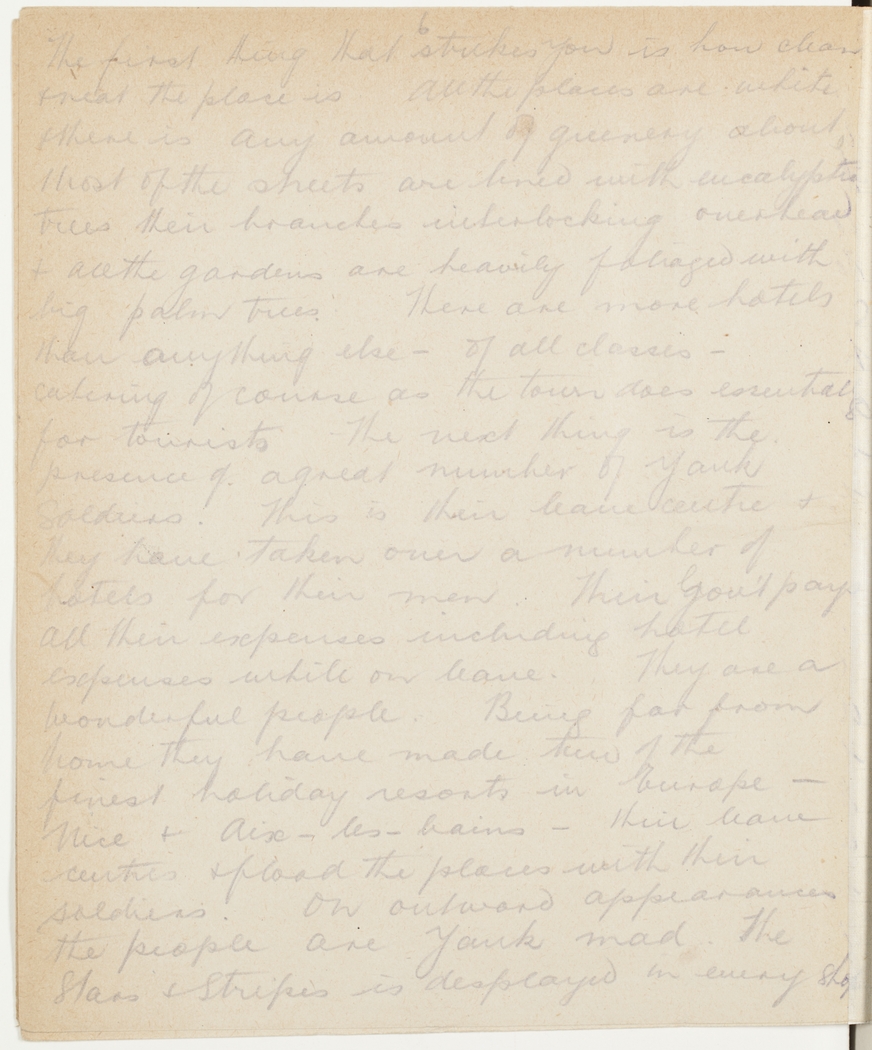 6
The first thing that strikes you is how clean
& neat the place is All the places are white
& there is any amount of greenery about,
Most of the streets are lined with eucalyptus
trees their branches interlocking overhead
& all the gardens are heavily foliaged with
big palm trees. There are more hotels
than anything else – of all classes –
catering of course as the town does essentially
for tourists The next thing is the
presence of a great number of Yank
Soldiers. This is their leave centre &
they have taken over a number of
hotels for their men. Their Gov't pays
all their expenses including hotel
expenses while on leave. They are a
wonderful people. Being far from
home they have made two of the
finest holiday resorts in Europe –
Nice & Aix-les-bains – their leave
centres & flood the places with their
soldiers. On outward appearances
the people are Yank mad. The
Stars & Stripes is desplayed in every shop